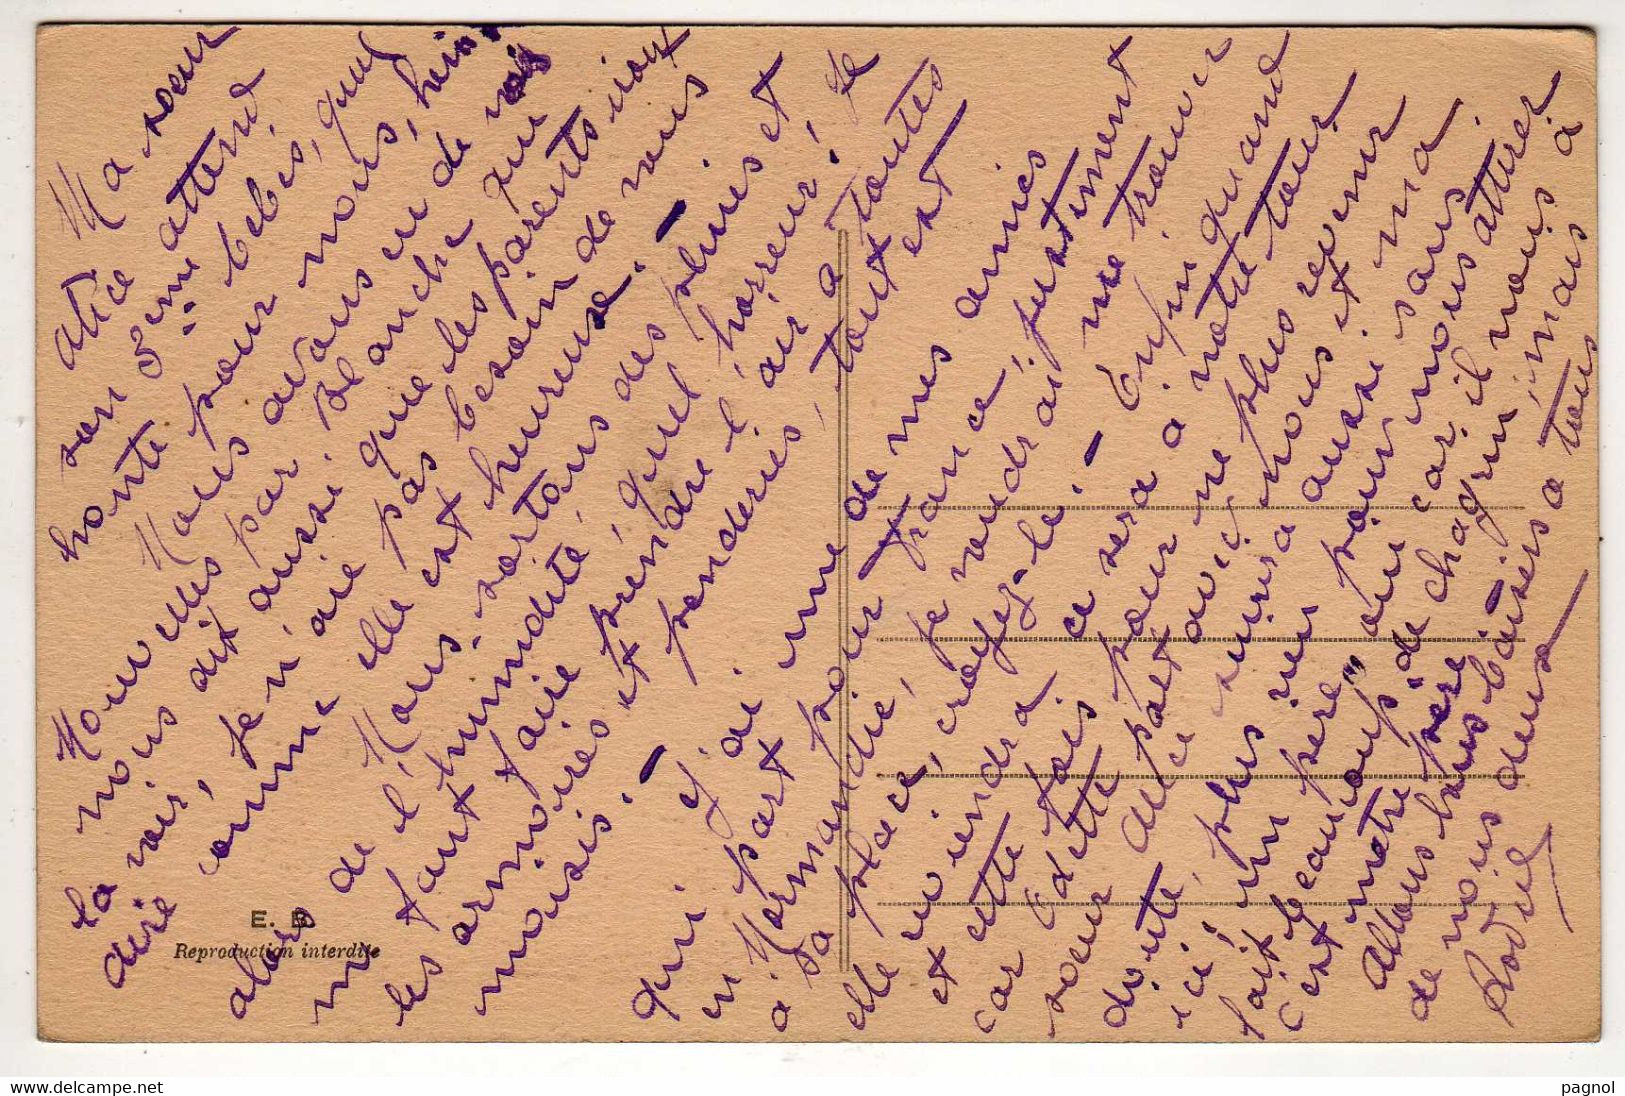 Ma soeur
Alice attend
son 5ème bébis, quel
honte pour nous, hein
Nous avons eu de vos
nouvelles par Blanche qui
nous dit aussi que les parents iront
la voir, je n'ai pas besoin de vous
dire comme elle est heureuse. —
alors
Nous sortons des pluies et
de l'humidité, quel horreur! Je
m
faut faire prendre l'air a toutes
les armoires et penderies, tout est
moisis. —
qui j'ai une de mes amies
en part pour France, justement
a Normandie, je voudrai me trouver
sa place, croyez-le. — Enfin quand
elle reviendra ce sera a notre tour
et cette fois pour ne plus revenir
car Odette part avec nous et ma
soeur Alice suivra aussi sans
doute, plus rien pour nous attirer
ici, un père, oui car il nous a
fait beaucoup de chagrin mais
c'est notre père.
Allons bons baisers a tous
de nous deux
E. B.
Reproduction interdite
pagnol